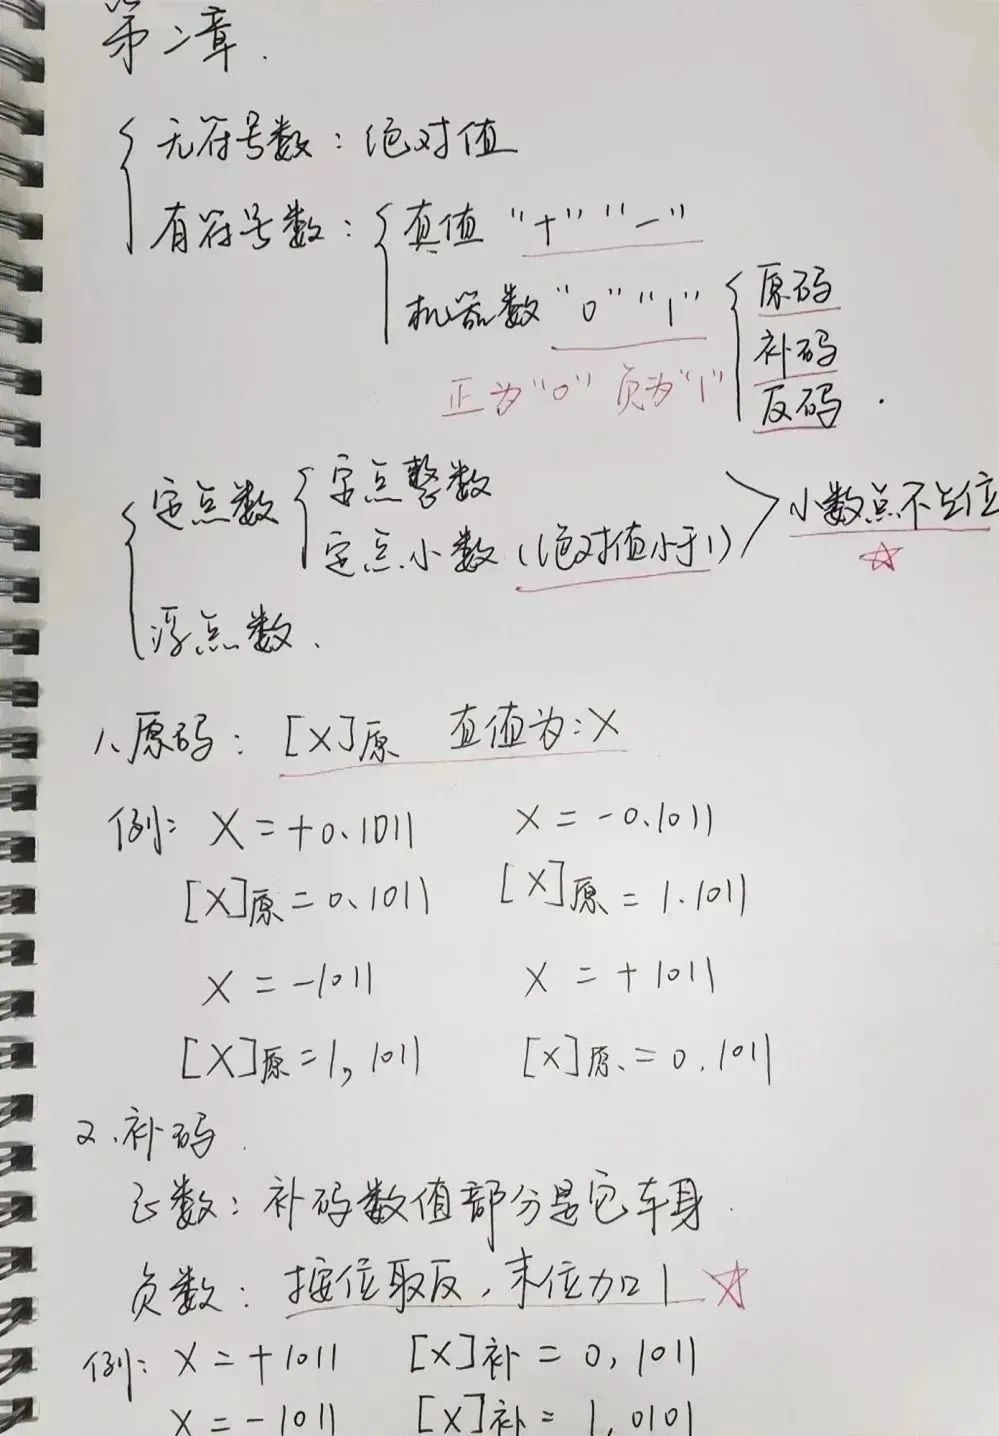 第二章.
无符号数：绝对值
有符号数：真值 "+" "-"
机器数 "0" "1"
原码
补码
反码.
正为"0" 负为"1"
定点数
定点整数
定点小数(绝对值小于1)
小数点不占位
浮点数.
1、原码：[X]原 真值为：X
例：X=+0.1011 X=-0.1011
[X]原=0.1011 [X]原=1.1011
X=-1011 X=+1011
[X]原=1,1011 [X]原.=0.1011
2.补码.
正数：补码数值部分是它本身.
负数：按位取反,末位加1
例：X=+1011 [X]补=0,1011
X=-1011 [X]补=1,0101